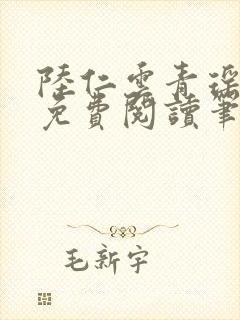 陸仁雲青瑤
免費閱讀筆
毛新宇